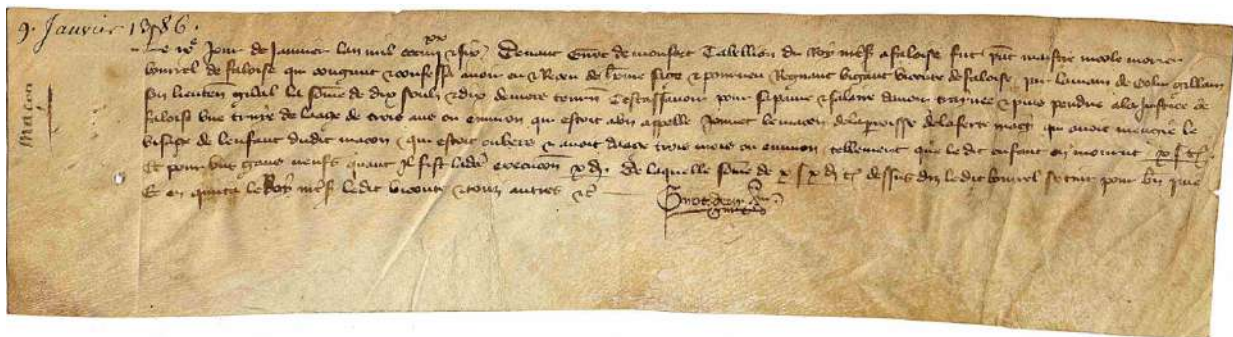 9. Janvier 1386.
Le ixe Jour de Janvier lan mil ccc iiii xx et six Devant Guiot de monfort Tabellion du Roy nre s. a faloise fut pnt maistre nicole morier
bourrel de faloise qui congnut et confessa avoir eu et Receu de home sage et pourveu Regnaut bigaut viconte de faloise par la main de Colin gillain
son lieuten gnal la some de dix soulz et dix deniers tourn Cestassavoir pour sa paine et salaire davoir traynee et puis pendue a la Justice de
faloise une truye de laage de trois ans ou environ qui estoit a un appelle Jonnet le macon de la paroisse de la ferte mace qui avoit mengie le
visaige de lenfant dudit macon qui estoit ou bers et avoit daage trois mois ou environ tellement que le dit enfant en mourut x s. t.
Et pour uns gans neufs quant Il fist ladite execucon x d. De laquelle some de x s x d t dessus diz le dit bourrel se tint pour bn paie
Et en quicta le Roy nre s. ledit viconte et touz autres etc
Guiot
Macon